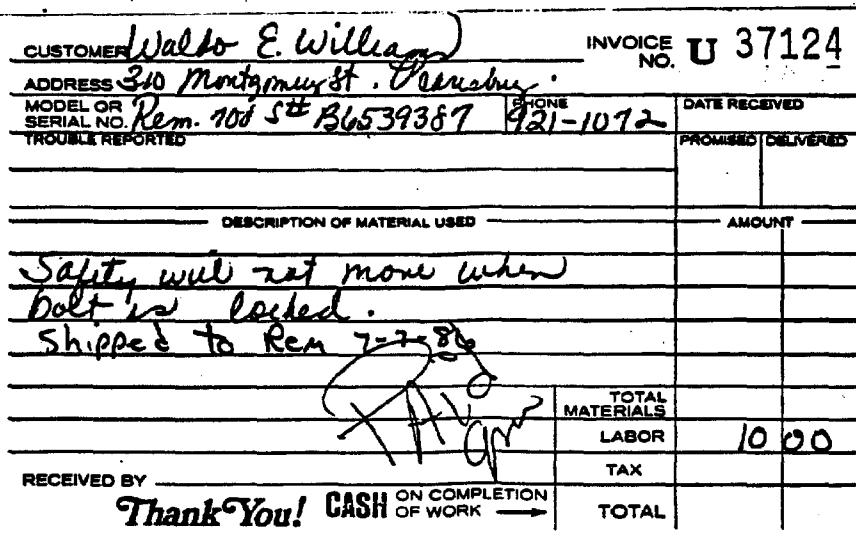 CUSTOMER Waldo E. Williams INVOICE NO. U 37124
ADDRESS 310 Montgomery St.
MODEL OR SERIAL NO. Rem. 700 S# B6539387 PHONE 921-1072 DATE RECEIVED
TROUBLE REPORTED PROMISED DELIVERED
DESCRIPTION OF MATERIAL USED AMOUNT
Safety will not move when
bolt is locked.
Shipped to Rem 7-7-86
Pd
TOTAL MATERIALS
LABOR 10 00
TAX
RECEIVED BY
Thank You! CASH ON COMPLETION OF WORK TOTAL